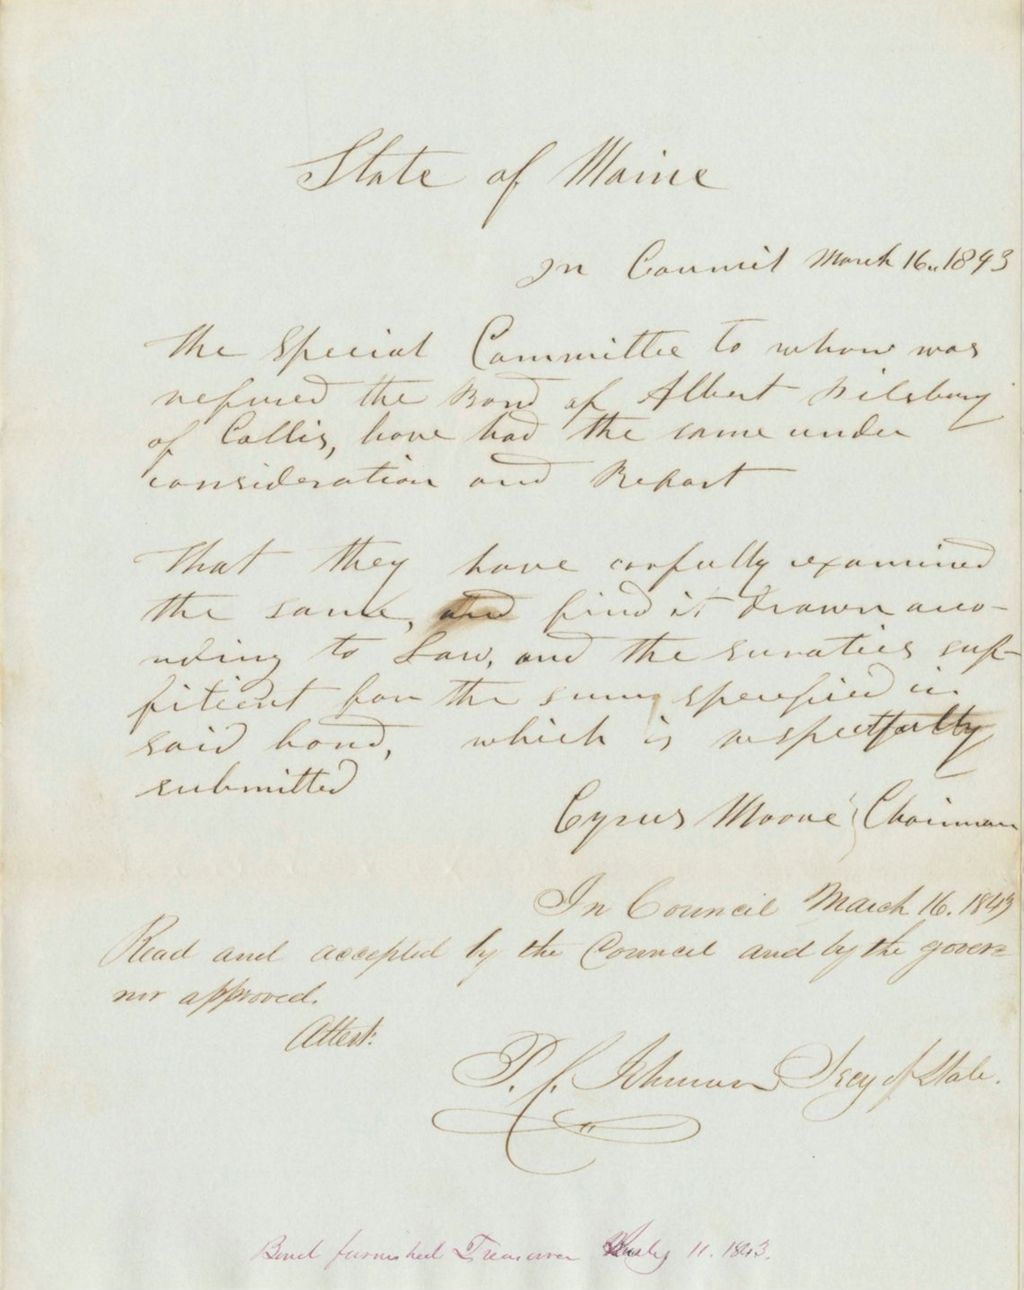 State of Maine
In Council March 16,, 1843
The Special Committee to whom was
refered the Bond of Albert Pilsbury
of Callis, have had the same under
consideration and Report
That they have carfully examined
the same, and find it drawn acco-
rding to Law, and the suraties suf-
fitient for the sum, specified in
said bond, which is respectfully
submitted
Cyrus Moore } Chairman
In Council March 16. 1843
Read and accepted by the Council and by the gover=
nor approved.
Attest:
P. C. Johnson Secy of State.
Bond furnished Treasurer July 11. 1843.